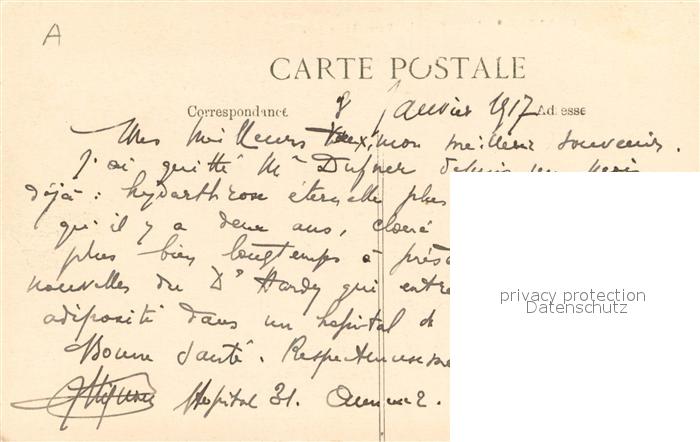 A
CARTE POSTALE
Correspondance 8 Janvier 1917 Adresse
Mes meilleurs voeux, mon meilleur souvenir.
J'ai quitté Mr Dufner depuis un mois
déjà : hydarthrose éternelle plus
qu'il y a deux ans, cloué
plus bien longtemps à prés
nouvelles du Dr Hardy qui entre
adiposité dans un hopital de
Bonne santé. Respectueuseme
Hopital 31.
privacy protection
Datenschutz